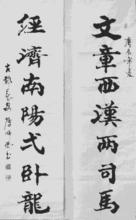 文章西漢兩司馬
經濟南陽弌卧龍